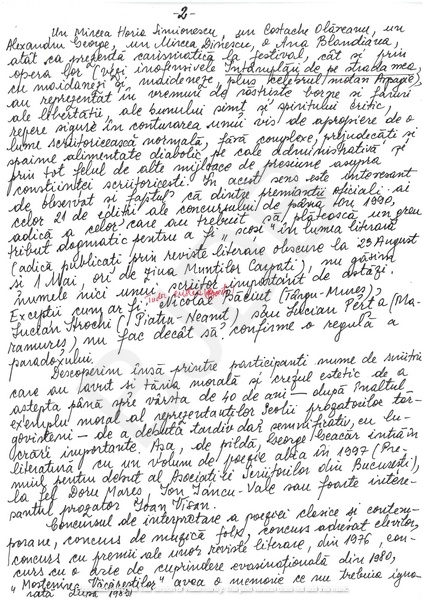 -2-
Un Mircea Horia Simionescu, un Costache Olăreanu, un
Alexandru George, un Mircea Dinescu, o Ana Blandiana,
atât ca prezență carismatică la festival, cât și prin
opera lor (vezi inofensivele Întâmplări de pe strada mea,
cu maidanezi și maidaneze, plus celebrul motan Arpagic)
au reprezentat în vremuri de răstriște borne și faruri
ale libertății, ale bunului simț și spiritului critic,
repere sigure în conturarea unui vis de apropiere de o
lume scriitoricească normală, fără complexe, prejudecăți și
spaime alimentate diabolic pe cale administrativă și
prin tot felul de alte mijloace de presiune asupra
conștiinței scriitoricești. În acest sens este interesant
de observat și faptul că dintre premianții oficiali ai
celor 21 de ediții ale concursului de până în 1990,
adică a celor care au trebuit să plătească un greu
tribut dogmatic pentru a fi „scoși” în lumea literară
(adică publicați prin reviste literare obscure la 23 August
și 1 Mai, ori de ziua Munților Carpați), nu găsim
numele nici unui scriitor important de astăzi.
Excepții cum ar fi Nicolae Băciuț (Târgu-Mureș),
Lucian Strochi (Piatra-Neamț) sau Lucian Perța (Ma-
ramureș), nu fac decât să confirme o regulă a
paradoxului.
Descoperim însă printre participanți nume de scriitori
care au avut și tăria morală și crezul estetic de a
aștepta până spre vârsta de 40 de ani — după înaltul
exemplu moral al reprezentanților Școlii prozatorilor târ-
govișteni — de a debuta tardiv dar semnificativ, cu lu-
crări importante. Așa, de pildă, George Geacăr intră în
literatură cu un volum de poezie abia în 1997 (Pre-
miul pentru debut al Asociației Scriitorilor din București),
la fel Doru Mareș, Ion Iancu-Vale sau foarte intere-
santul prozator Ioan Vișan.
Concursul de interpretare a poeziei clasice și contem-
porane, concurs de muzică folk, concurs adresat elevilor,
concurs cu premii ale unor reviste literare, din 1976, con-
curs cu o arie de cuprindere evasinațională din 1980,
„Moștenirea Văcăreștilor” avea o memorie ce nu trebuie igno-
rată după 1989